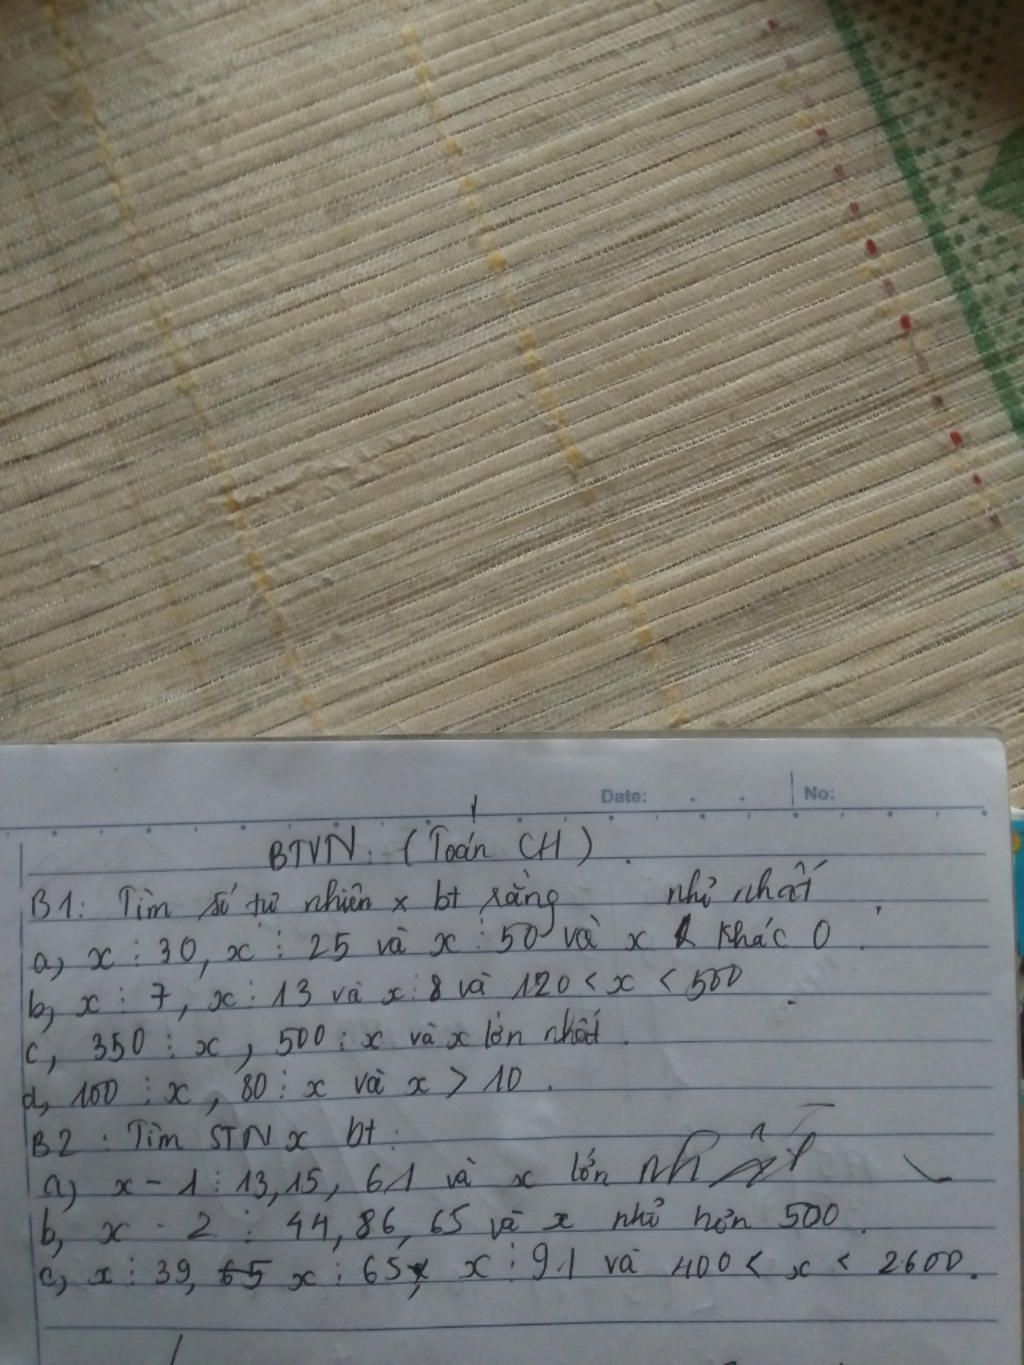 Date: No:
BTVN. (Toán CH).
B1: Tìm số tự nhiên x bt rằng nhỏ nhất
a, x ⋮ 30, x ⋮ 25 và x ⋮ 50 và x khác 0.
b, x ⋮ 7, x ⋮ 13 và x ⋮ 8 và 120 < x < 500
c, 350 ⋮ x, 500 ⋮ x và x lớn nhất.
d, 100 ⋮ x, 80 ⋮ x và x > 10.
B2: Tìm STN x bt:
a, x - 1 ⋮ 13, 15, 61 và x lớn nhất
b, x - 2 ⋮ 44, 86, 65 và x nhỏ hơn 500.
c, x ⋮ 39, x ⋮ 65, x ⋮ 91 và 400 < x < 2600.